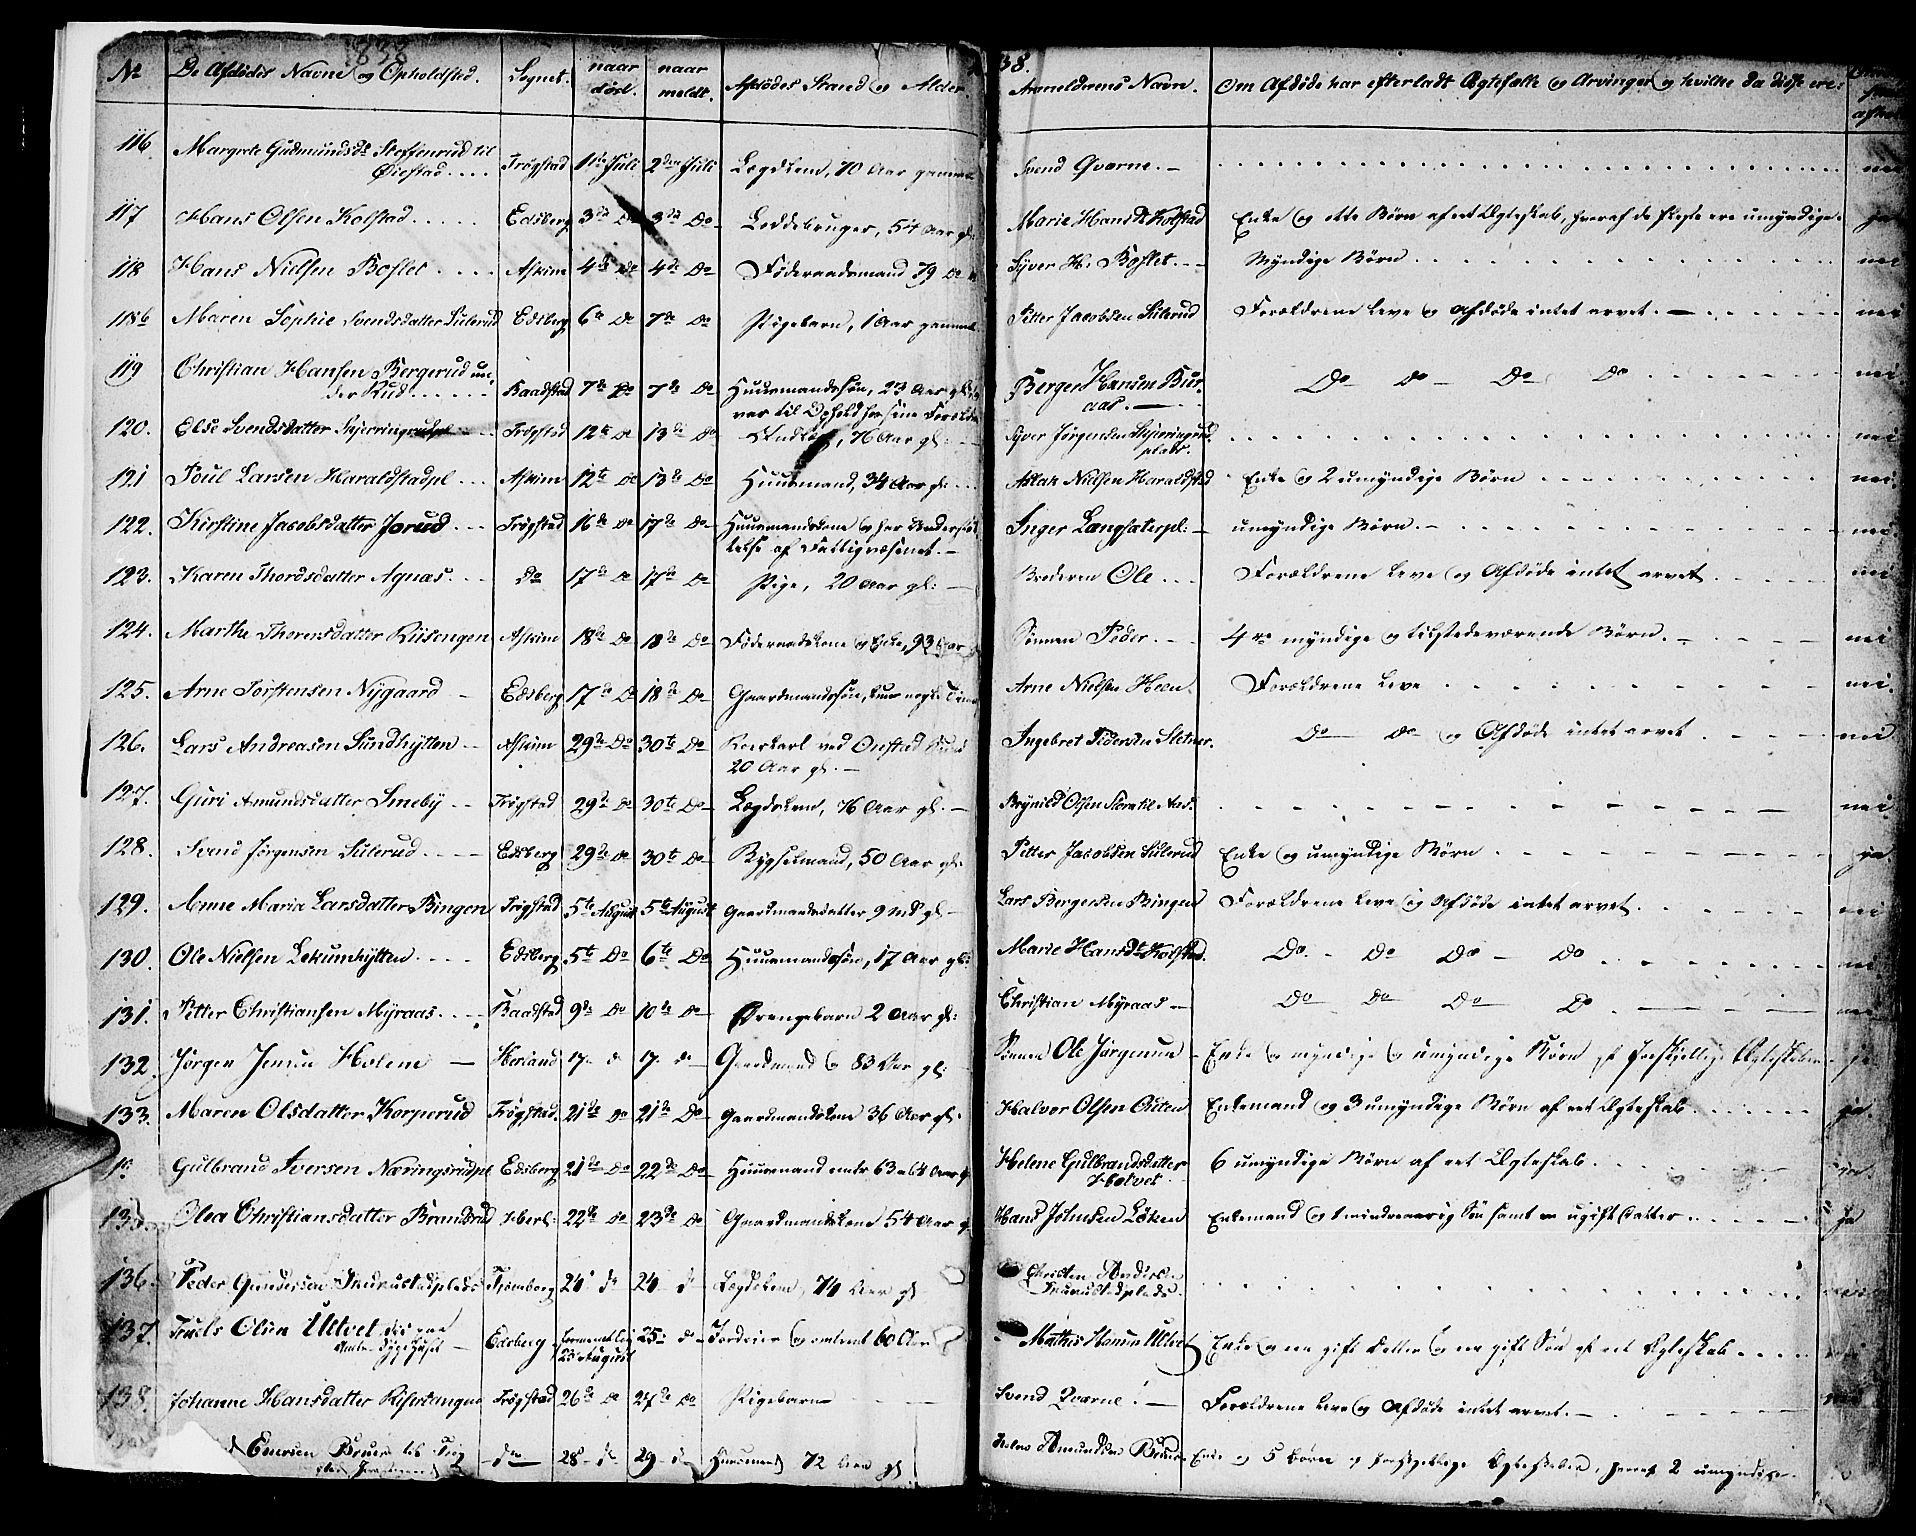 1838
38.
No De Afdødes Navne og Opholdsted. Sognet. naar død. naar meldt. Afdødes Stand og Alder. Anmelderens Navn. Om Afdøde har efterladt Ægtefælle og Arvinger og hvilke da disse ere:
116. Margrete Gudmundsdr Steffenrud til Trøgstad 1ste Juli 2den Juli Lægdslem, 70 Aar gammel Svend Qværne.— nei
Øiestad....
117 Hans Olsen Kolstad..... Edsberg 3de Do 3de Do Leddebruger, 54 Aar gl: Marie Hansdr Kolstad Enke og otte Børn af eet Ægteskab, hvoraf de fleste ere umyndige. ja
118 Hans Nielsen Boslet.... Askim 4de Do 4de Do Føderaadsmand 79 Do Syver H: Boslet.-- Myndige Børn nei
118b Maren Sophie Svendsdatter Sulerud Edsberg 6te Do 7de Do Pigebarn, 1 Aar gammel Petter Jacobsen Sulerud Forældrene leve og Afdøde intet arvet.— nei
119 Christian Hansen Bergerud un- Baadstad 7de Do 7de Do Huusmandssøn, 23 Aar gl: Berger Hansen Bur- Do Do Do Do nei
der Rud...... var til Ophold hos sine Forældre aas.—
120. Else Svendsdatter Skjerringrudpl Trøgstad 12te Do 13de Do 76 Aar gl:— Syver Jørgensen Skjerringrud- nei
plads.
121 Poul Larsen Haraldstadpl... Askim 12te Do 13de Do Huusmand, 34 Aar gl: Aslak Nielsen Haraldstad Enke og 2 umyndige Børn nei
122. Kirstine Jacobsdatter Jorud... Trøgstad 16de Do 17de Do Huusmandskone og har Understøt- Inger Langsæterpl:— umyndige Børn.— nei
telse af Fattigvæsenet.—
123. Karen Thordsdatter Agnæs... Do 17de Do 17de Do Pige, 20 Aar gl:— Broderen Ole... Forældrene leve og Afdøde intet arvet nei
124. Marthe Thorensdatter Riisengen Askim 18de Do 18de Do Føderaadskone og Enke, 93 Aar Sønnen Peder.-- 4re myndige og tilstedeværende Børn. nei
125. Arne Torstensen Nygaard — Edsberg 17de Do 18de Do Gaardmandssøn, kun nogle Timer Arne Nielsen Heen. Forældrene leve nei.
126. Lars Andreasen Sundhytten — Askim 29de Do 30te Do Roerskarl ved Onstad Sund Ingebret Pedersen Sletner. Do Do og Afdøde intet arvet nei
20 Aar gl.—
127. Guri Amundsdatter Smeby -- Trøgstad 29de Do 30te Do Lægdslem, 76 Aar gl:— Brynild Olsen til Aas. nei
128. Svend Jørgensen Sulerud... Edsberg 29de Do 30te Do Bygselmand, 50 Aar gl: Petter Jacobsen Sulerud Enke og umyndige Børn ja
129. Anne Maria Larsdatter Bingen Trøgstad 5te August 5te August Gaardmandsdatter 9 Md gl— Lars Bergersen Bingen Forældrene leve og Afdøde intet arvet. nei
130. Ole Nielsen Lekumhytten.... Edsberg 5te Do 6te Do Huusmandssøn, 17 Aar gl: Marie Hansdr Kolstad. Do Do Do Do nei
131. Petter Christiansen Myraas.... Baadstad 9de Do 10de Do Drengebarn 2 Aar gl: Christian Myraas — Do Do Do Do nei
132. Jørgen Jensen Holene — Herland 17- d 17- d Gaardmand og 83 Aar gl: Sønnen Ole Jørgensen Enke og myndige og umyndige Børn af forskjellige Ægteskaber ja
133. Maren Olsdatter Korperud Trøgstad 21de Do 21de Do Gaardmandskone 36 Aar gl: Halvor Olsen Enkemand og 3 umyndige Børn af eet Ægteskab. ja
Gulbrand Iversen Næringsrudpl Edsberg 21de Do 22de Do Huusmand 63 a 64 Aar Helene Gulbrandsdatter 6 umyndige Børn af eet Ægteskab. ja
Holvet
135. Olea Christiansdatter Brandsrud Herl: 22de Do 23de Do Gaardmandskone 54 Aar Hans Johnsen Løken Enkemand og 1 mindreaarig Søn samt en ugift Datter ja
136. Peder Gundersen Tromborg 24 d 24 d Lægdslem, 74 Aar gl Christen Anders-
137. Truels Olsen Ultvet Edsberg 23 August 25- d Inderst og omtrent 60 Aar Mathis Hansen Ultvet Enke og en gift Datter og en gift Søn af eet Ægteskab....
138. Johanne Hansdatter Trøgstad 26de Do 27de Do Pigebarn Svend Qværne.— Forældrene leve og Afdøde intet arvet.— nei
Enersen Bruer do 28- d 29- d Huusmand 72 Aar gl Amundsen Bruer Enke og 5 børn af forskjellige Ægteskaber, hvoraf 2 umyndige.